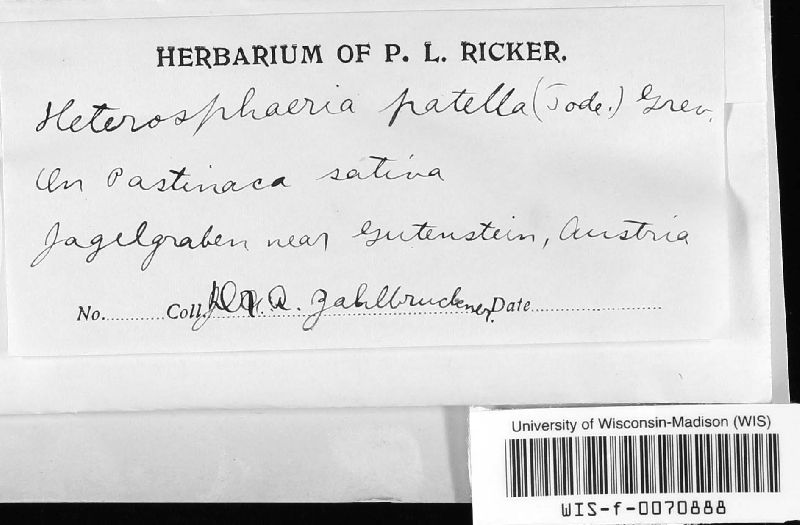 HERBARIUM OF P. L. RICKER.
Heterosphaeria patella (Tode.) Grev.
On Pastinaca sativa
Jagelgraben near Gutenstein, Austria
No. Coll. Dr. A. Zahlbruckner. Date
University of Wisconsin-Madison (WIS)
WIS-f-0070888